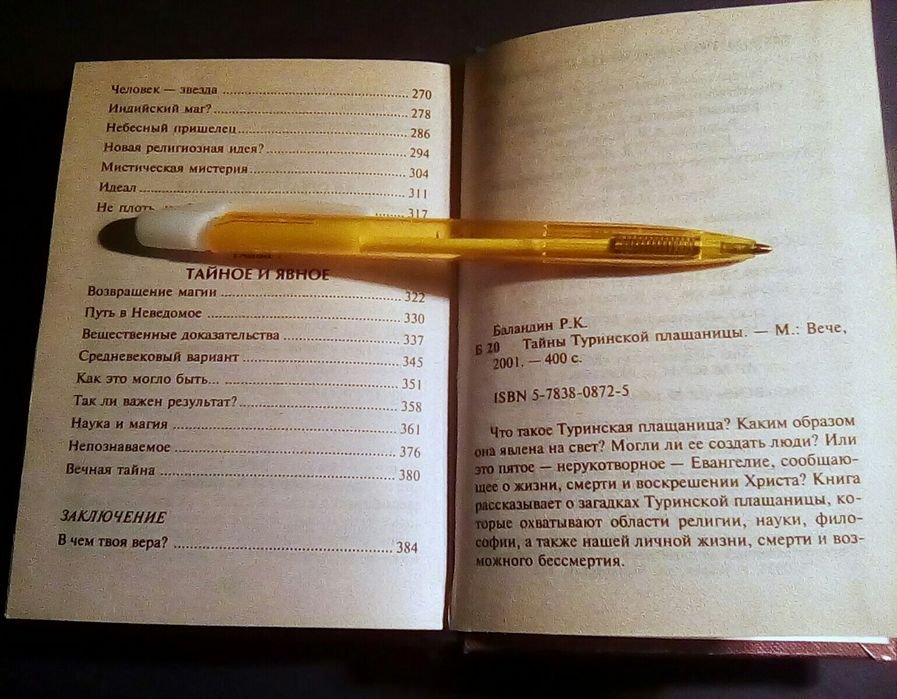 Человек — звезда ........ 270
Индийский маг? ........ 278
Небесный пришелец ........ 286
Новая религиозная идея? ........ 294
Мистическая мистерия ........ 304
Идеал ........ 311
Не плоть ........ 317
ТАЙНОЕ И ЯВНОЕ
Возвращение магии ........ 322
Путь в Неведомое ........ 330
Вещественные доказательства ........ 337
Средневековый вариант ........ 345
Как это могло быть... ........ 351
Так ли важен результат? ........ 358
Наука и магия ........ 361
Непознаваемое ........ 376
Вечная тайна ........ 380
ЗАКЛЮЧЕНИЕ
В чем твоя вера? ........ 384
Баландин Р.К.
Б 20 Тайны Туринской плащаницы. — М.: Вече,
2001. — 400 с.
ISBN 5-7838-0872-5
Что такое Туринская плащаница? Каким образом
она явлена на свет? Могли ли ее создать люди? Или
это пятое — нерукотворное — Евангелие, сообщаю-
щее о жизни, смерти и воскрешении Христа? Книга
рассказывает о загадках Туринской плащаницы, ко-
торые охватывают области религии, науки, фило-
софии, а также нашей личной жизни, смерти и воз-
можного бессмертия.